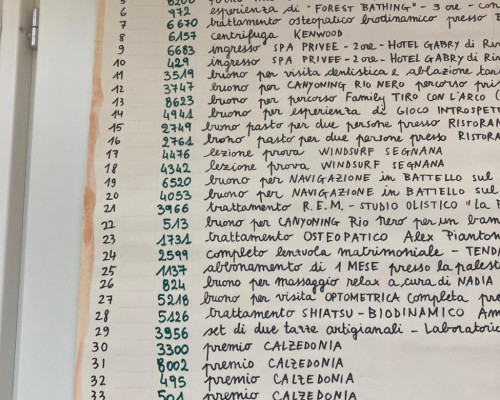 5 8200
6 972 esperienza di "FOREST BATHING" - 3 ore - con
7 6670 trattamento osteopatico biodinamico presso
8 6157 centrifuga KENWOOD
9 6683 ingresso SPA PRIVEE - 2 ore - HOTEL GABRY di Riv
10 429 ingresso SPA PRIVEE - 2 ore - HOTEL GABRY di Riv
11 3519 buono per visita dentistica e ablazione tar
12 3747 buono per CANYONING RIO NERO percorso pri
13 8623 buono per percorso Family TIRO CON L'ARCO (
14 4941 buono per esperienza di GIOCO INTROSPETT
15 2749 buono pasto per due persone presso RISTORAN
16 2761 buono pasto per due persone presso RISTORA
17 4476 lezione prova WINDSURF SEGNANA
18 4342 lezione prova WINDSURF SEGNANA
19 6520 buono per NAVIGAZIONE in BATTELLO sul
20 4053 buono per NAVIGAZIONE in BATTELLO sul
21 3966 trattamento R.E.M. - STUDIO OLISTICO "La
22 513 buono per CANYONING Rio Nero per un bam
23 1731 trattamento OSTEOPATICO Alex Pianton
24 2599 completo lenzuola matrimoniale - TENDA
25 1137 abbonamento di 1 MESE presso la palest
26 824 buono per massaggio relax a cura di NADIA
27 5218 buono per visita OPTOMETRICA completa pre
28 5126 trattamento SHIATSU - BIODINAMICO Am
29 3956 set di due tazze artigianali - Laboratorio
30 3300 premio CALZEDONIA
31 8002 premio CALZEDONIA
32 495 premio CALZEDONIA
33 501 premio CALZEDONIA